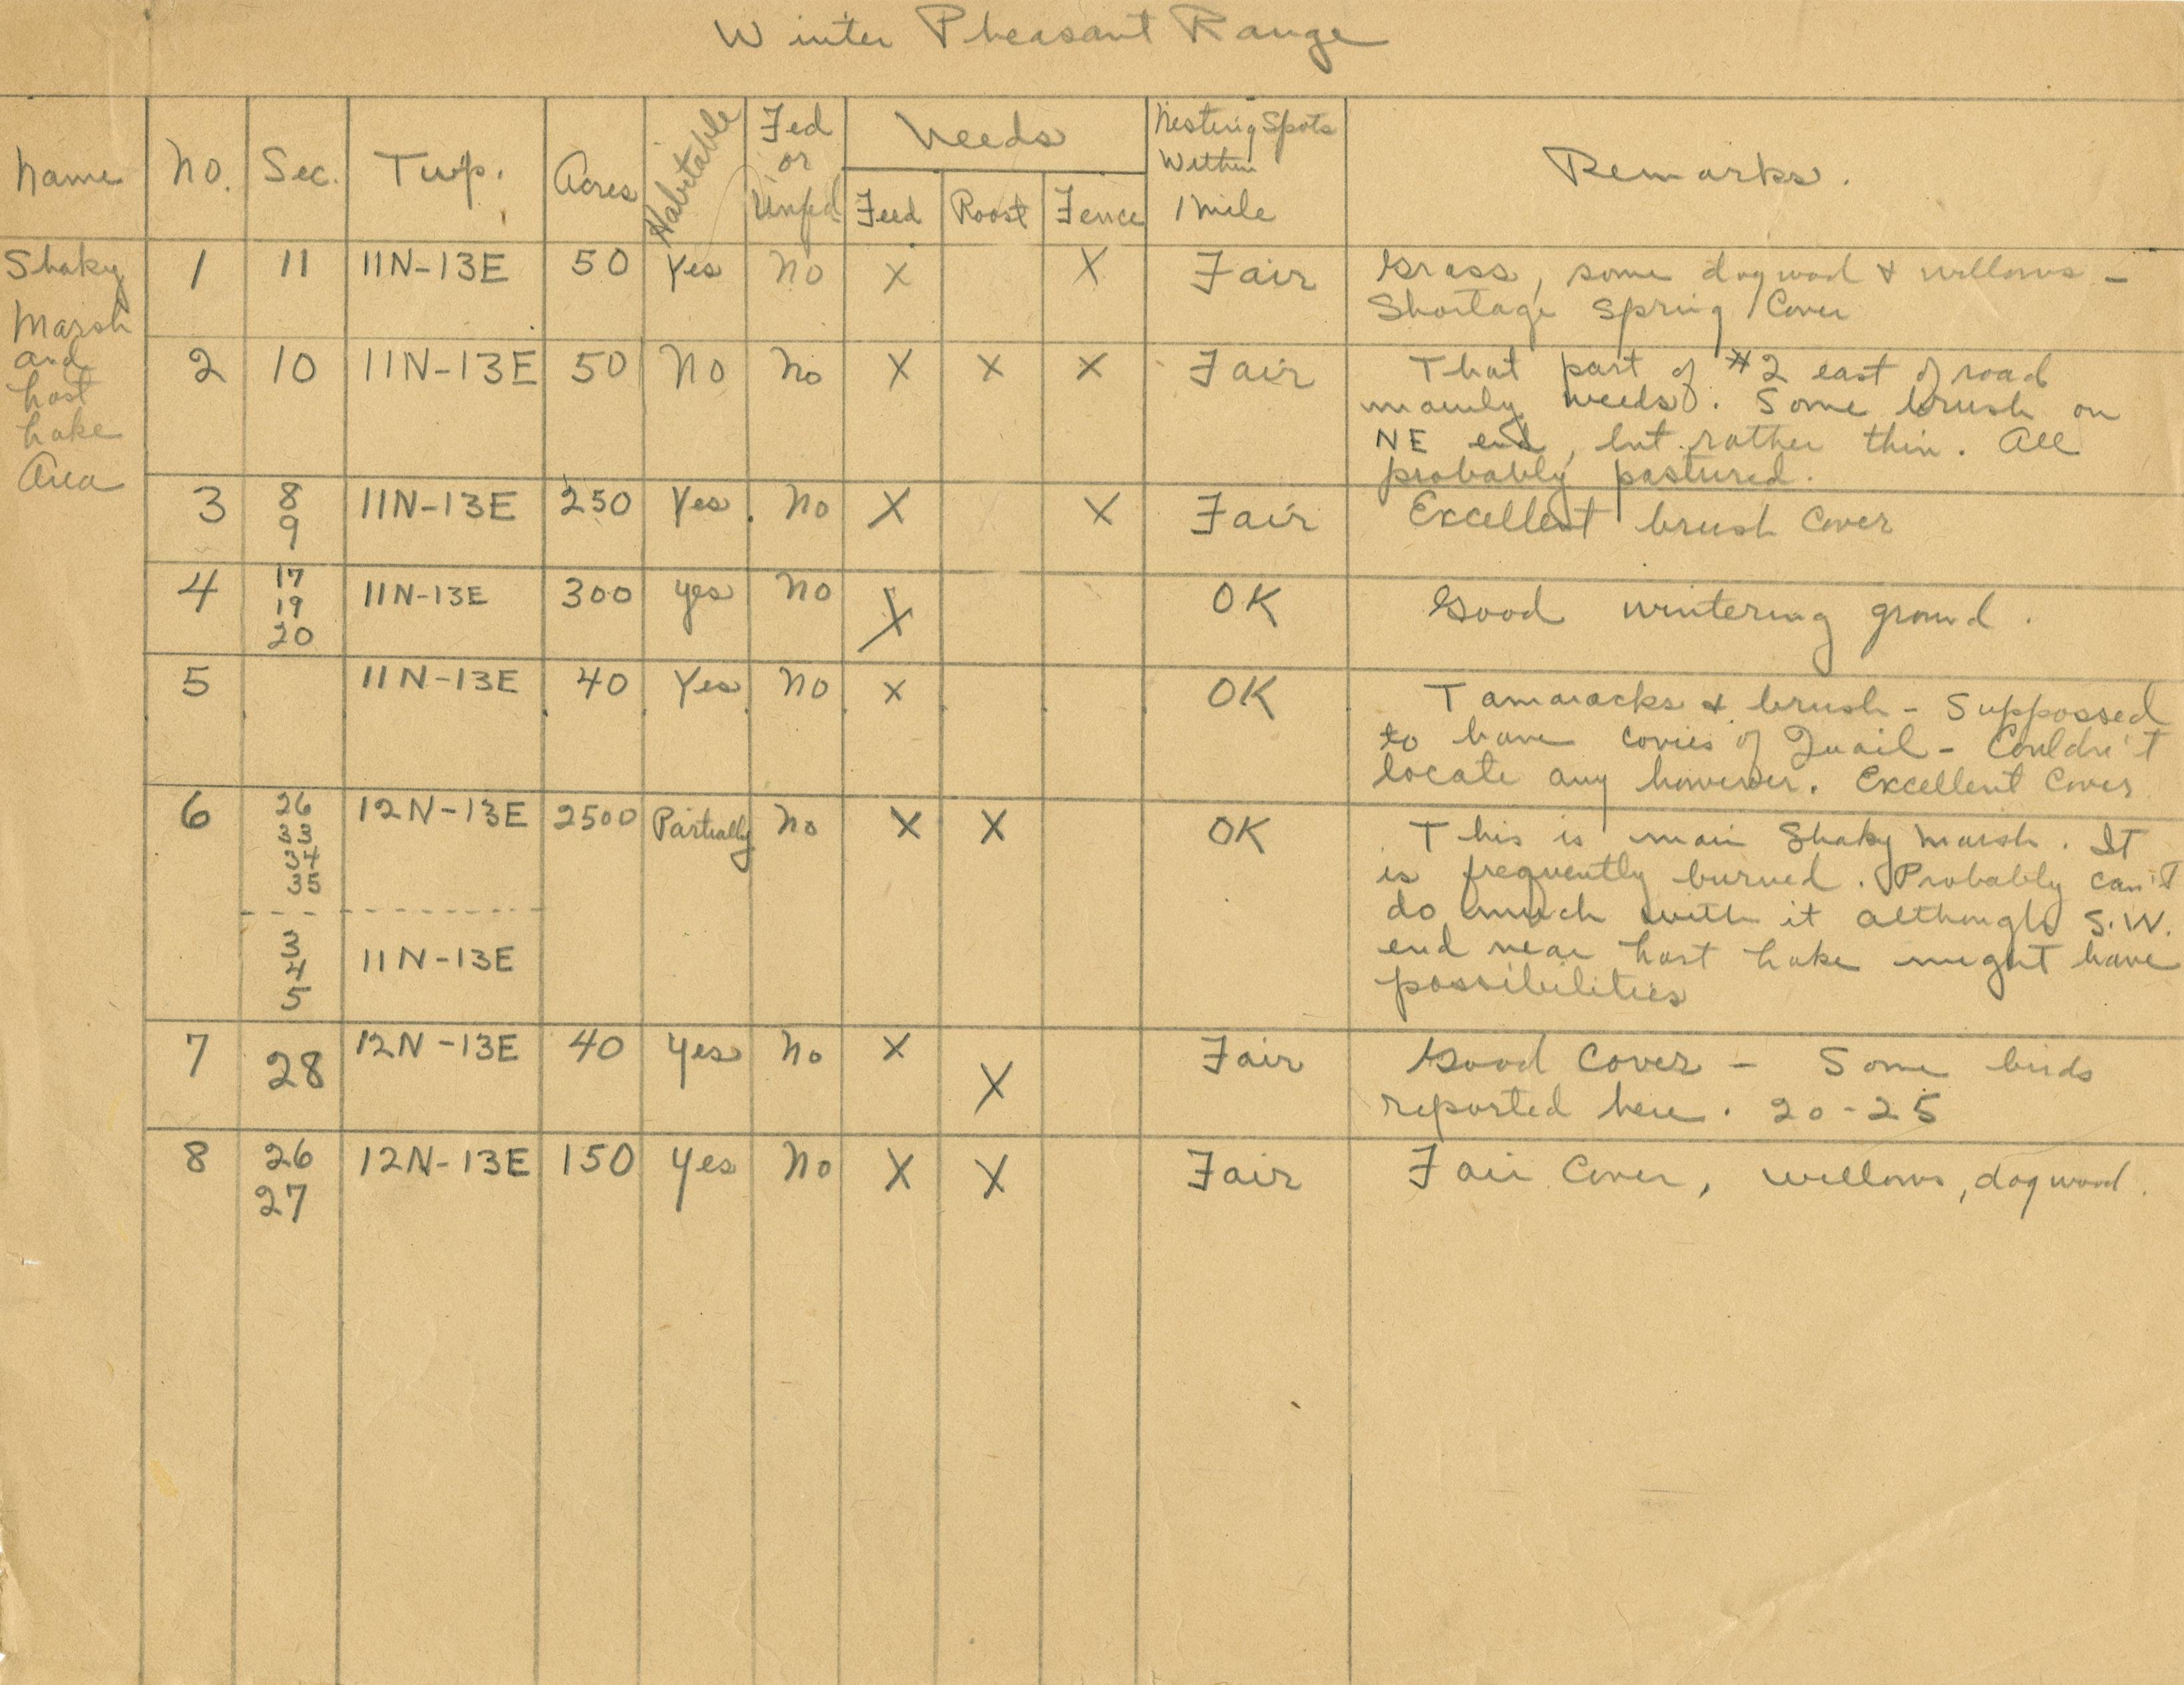 Winter Pheasant Range
Name No. Sec. Twp. Acres Habitable Fed or Unfed Needs Feed Roost Fence Nesting Spots Within 1 mile Remarks.
Shaky Marsh and Lost Lake Area
1 11 11N-13E 50 Yes No X X Fair Grass, some dogwood & willows -
Shortage Spring Cover
2 10 11N-13E 50 No No X X X Fair That part of #2 east of road
mainly weeds. Some brush on
NE end, but rather thin. All
probably pastured.
3 8 11N-13E 250 Yes. No X X Fair Excellent brush cover
9
4 17 11N-13E 300 yes No X OK Good wintering ground.
19
20
5 11N-13E 40 Yes No X OK Tamaracks & brush - Suppossed
to have covies of Quail - Couldn't
locate any however. Excellent Cover
6 26 12N-13E 2500 Partially No X X OK This is main Shaky Marsh. It
33 is frequently burned. Probably can't
34 do much with it although S.W.
35 end near Lost Lake might have
possibilities
3
4 11N-13E
5
7 28 12N-13E 40 Yes No X X Fair Good Cover - Some birds
reported here. 20-25
8 26 12N-13E 150 Yes No X X Fair Fair Cover, willows, dogwood.
27